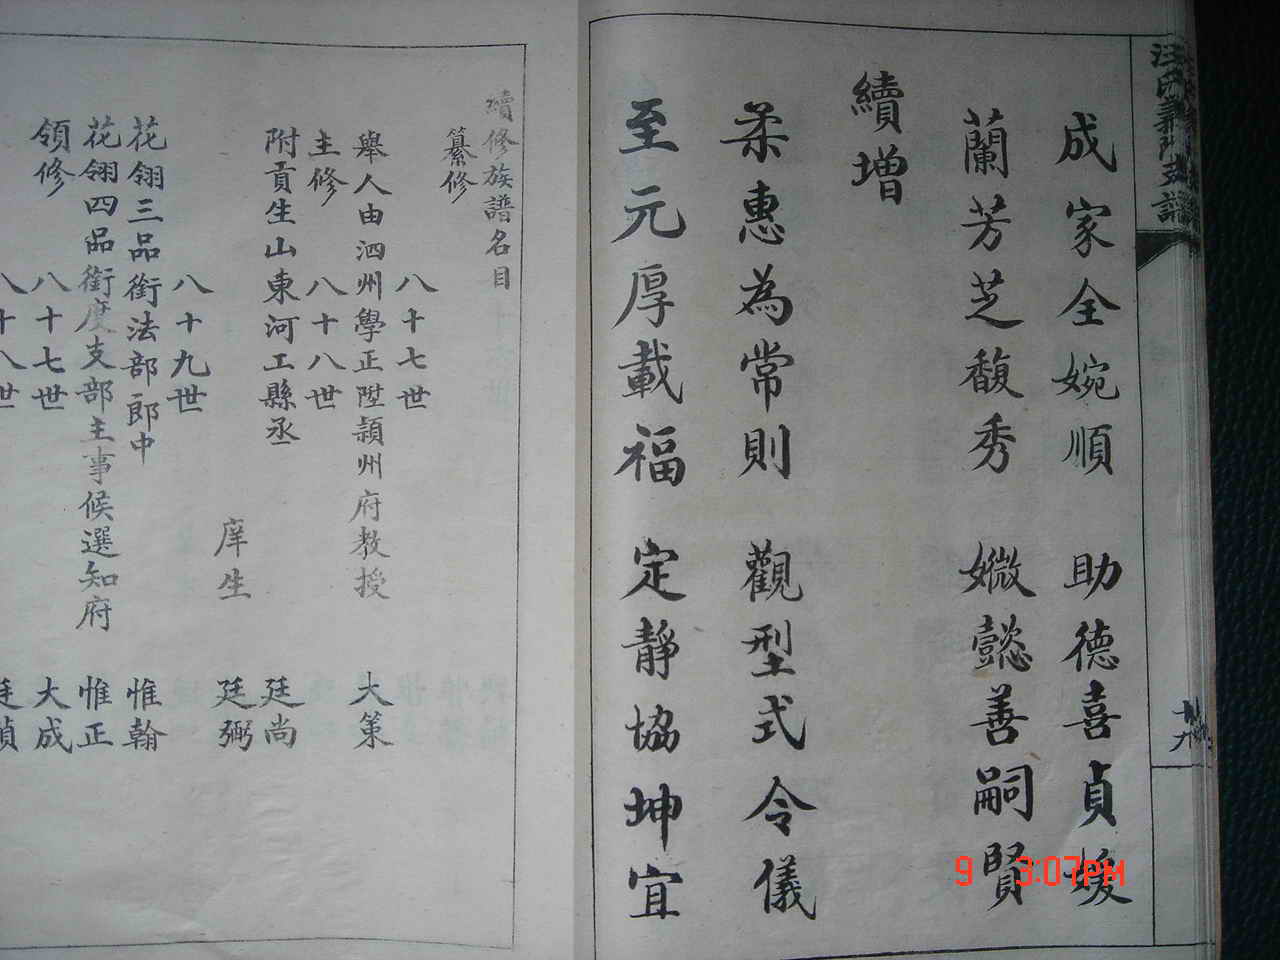 成家全婉順 助德喜貞媛
蘭芳芝馥秀 媺懿善嗣賢
續增
柔惠為常則 觀型式令儀
至元厚載福 定靜協坤宜
續修族譜名目
纂修
八十七世
舉人由泗州學正陞潁州府教授 大策
主修 八十八世
附貢生山東河工縣丞 廷尚
庠生 廷弼
八十九世
花翎三品銜法部郎中 惟翰
花翎四品銜度支部主事候選知府 惟正
領修 八十七世 大成
八十八世 廷楨
汪氏義門支譜
9 3:07PM